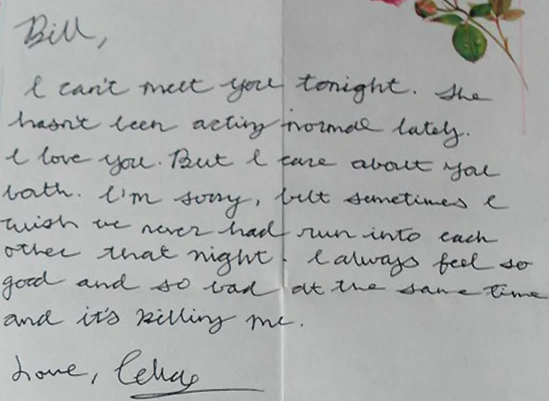 Bill,
I can't meet you tonight. She
hasn't been acting normal lately.
I love you. But I care about you
both. I'm sorry, but sometimes I
wish we never had run into each
other that night. I always feel so
good and so bad at the same time
and it's killing me.
Love,